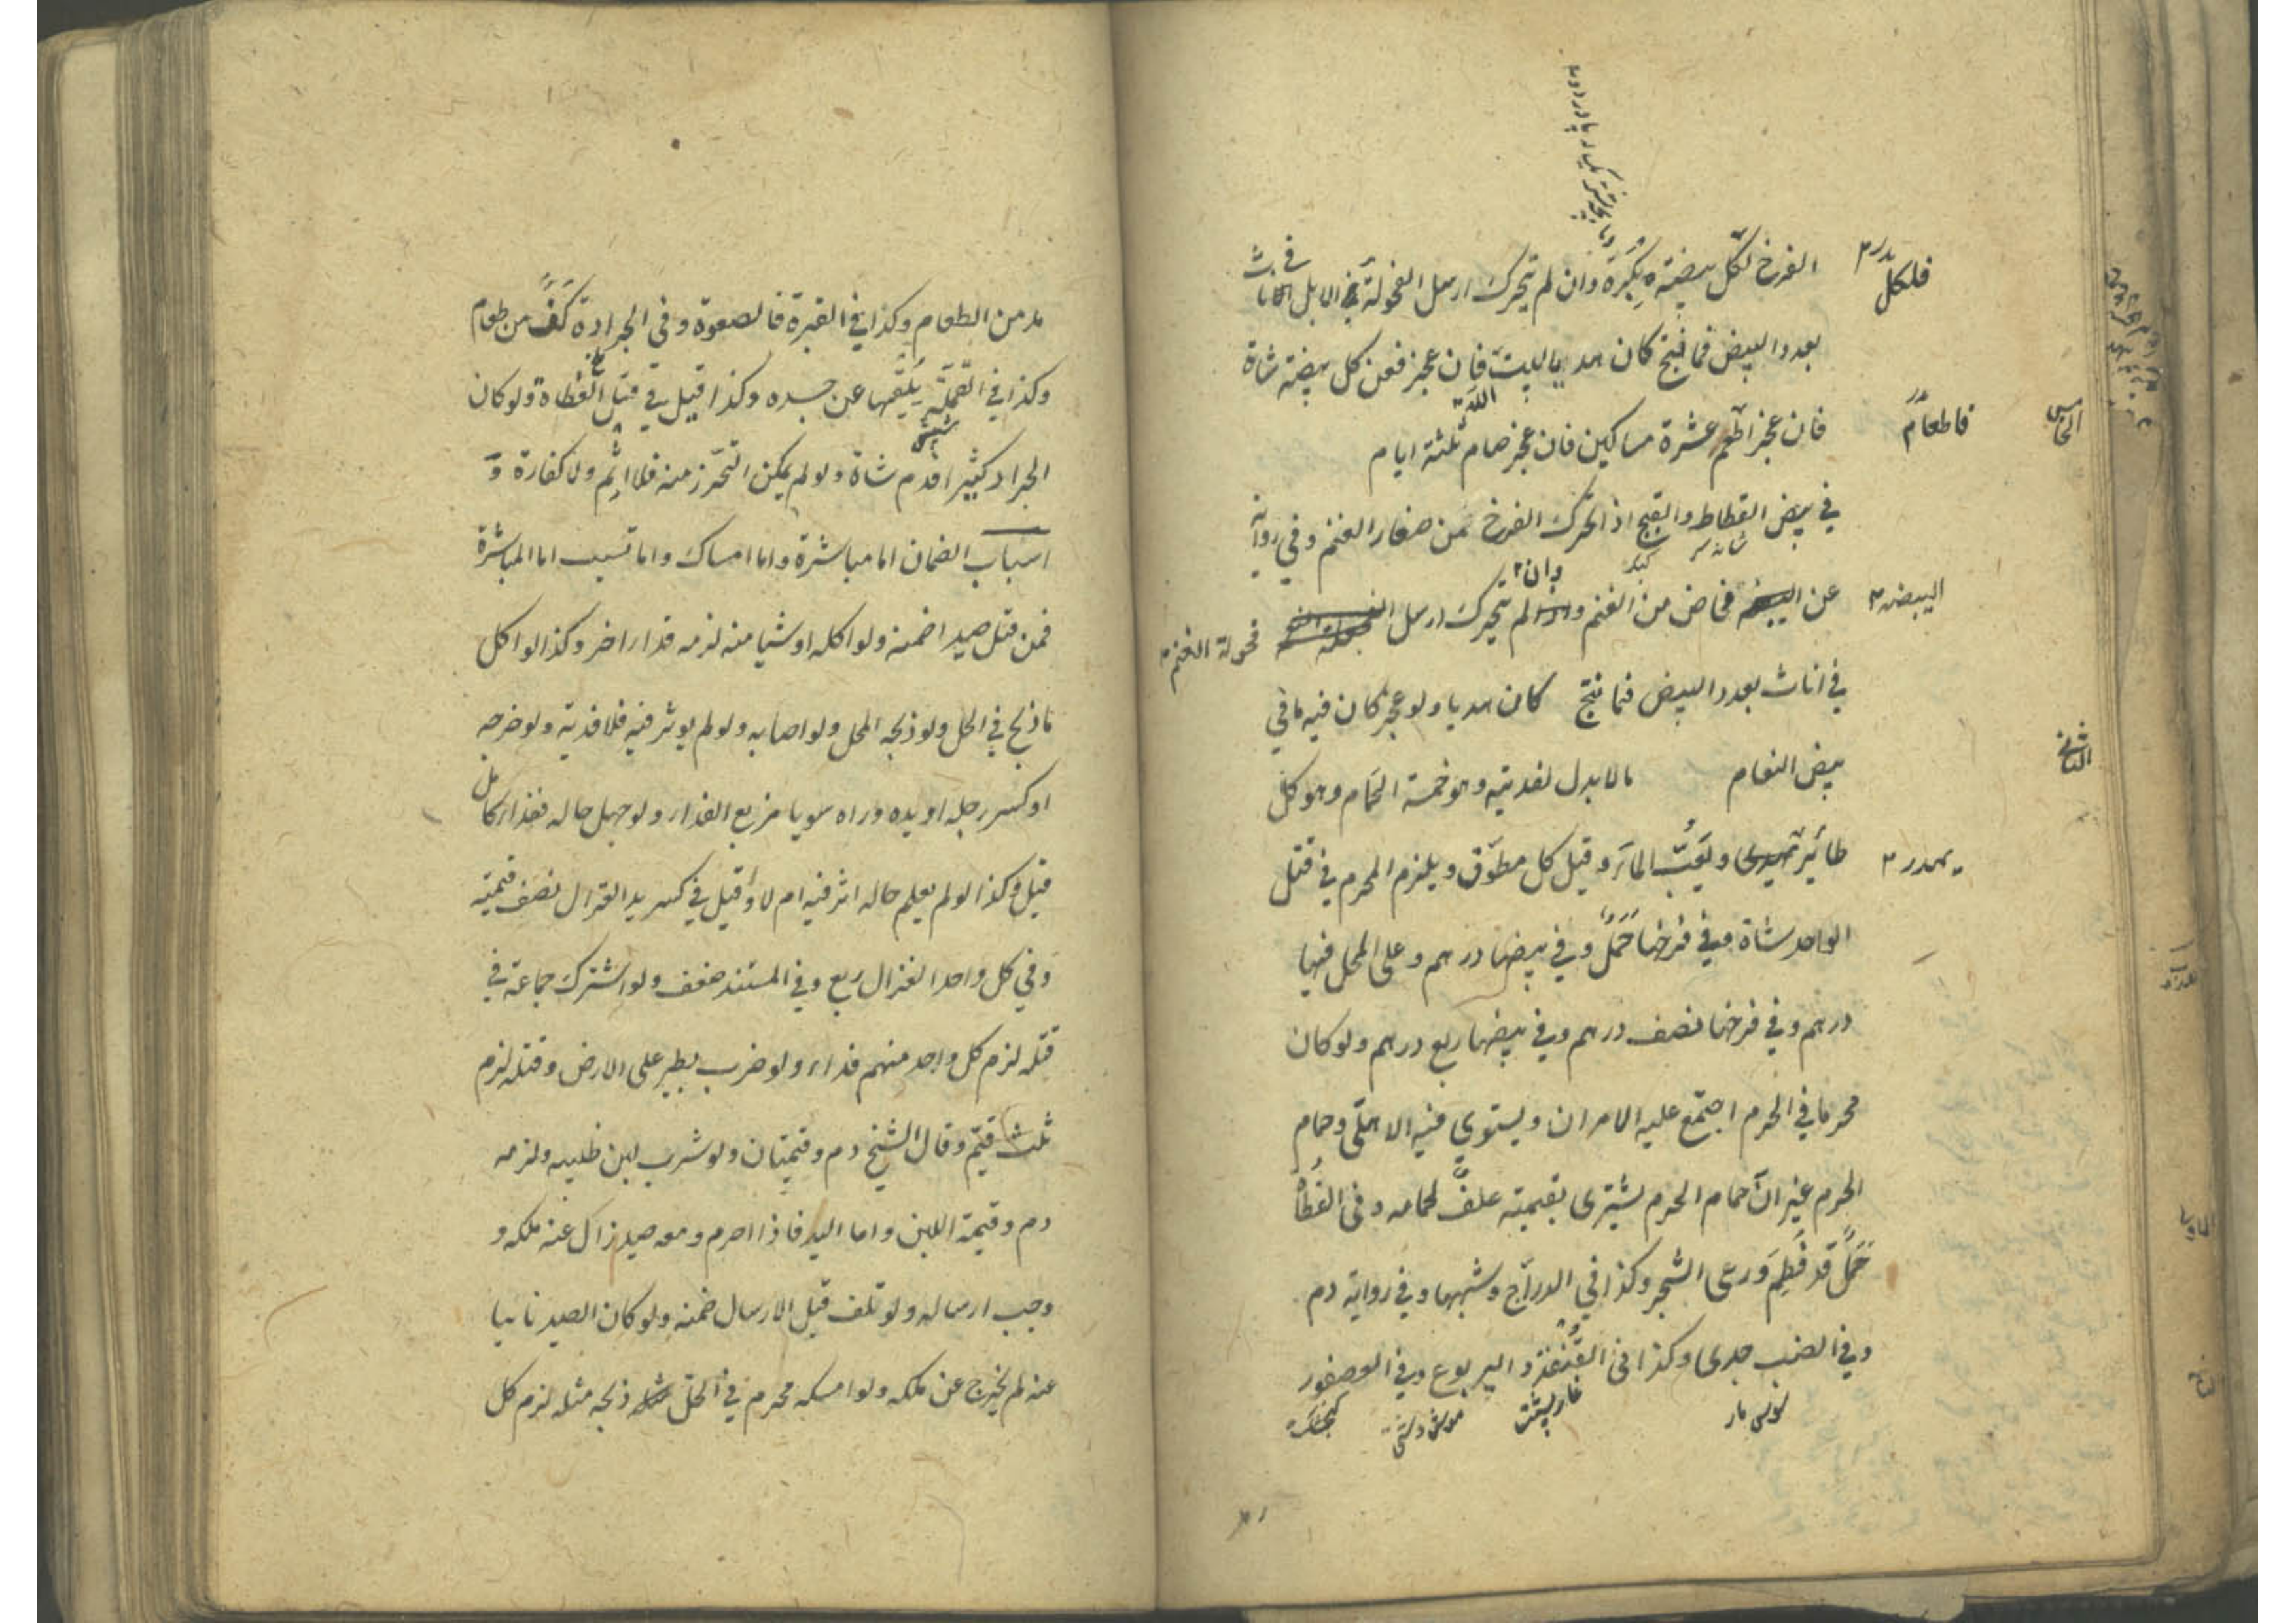 الفرخ لكل بيضة بكرة وان لم يتحرك ارسل الفحولة في الابل في اناث
فلكل
بعدد البيض فما نتج كان هديا للبيت فان عجز فعن كل بيضة شاة
فان عجز اطعم عشرة مساكين فان عجز صام ثلثة ايام
فاطعام
الخامس
في بيض القطاط والقبج اذا تحرك الفرخ من صغار الغنم وفي رواية
كبك
عن البيضة مخاض من الغنم وان لم يتحرك ارسل فحولة الغنم
البيض
في اناث بعدد البيض فما نتج كان هديا ولو عجز كان فيه ما في
بيض النعام مالا بدل لفديته وهو خمسة الحمام وهو كل
الثاني
طائر يهدر ويعب الماء وقيل كل مطوق ويلزم المحرم في قتل
يهدر
الواحد شاة وفي فرخها حمل وفي بيضها درهم وعلى المحل فيها
درهم وفي فرخها نصف درهم وفي بيضها ربع درهم ولو كان
محرما في الحرم اجتمع عليه الامران ويستوي فيه الاهلي وحمام
الحرم غير ان حمام الحرم يشترى بقيمته علف لحمامه وفي القطاة
حمل قد فطم ورعى الشجر وكذا في الدراج وشبهها وفي رواية دم
وفي الضب جدى وكذا في القنفذ واليربوع وفي العصفور
خارپشت موش دشتى كنجشك
مد من الطعام وكذا في القبرة فالصعوة وفي الجرادة كف من طعام
وكذا في القملة يلقيها عن جسده وكذا قيل في قتل القطاة ولو كان
شپش
الجراد كثيرا فدم شاة ولو لم يمكن التحرز منه فلا اثم ولا كفارة و
اسباب الضمان اما مباشرة واما امساك واما تسبب اما المباشرة
فمن قتل صيدا ضمنه ولو اكله او شيا منه لزمه فداء اخر وكذا لو اكل
ما ذبح في الحل ولو ذبحه المحل ولو اصابه ولم يوثر فيه فلا فدية ولو جرحه
او كسر رجله او يده وراه سويا فربع الفداء ولو جهل حاله ففداء كامل
قيل وكذا لو لم يعلم حاله اثر فيه ام لا وقيل في كسر يد الغزال نصف قيمته
وفي كل واحد الغزال ربع وفي المستند ضعف ولو اشترك جماعة في
قتله لزم كل واحد منهم فداء ولو ضرب بطير على الارض وقتله لزم
ثلث قيم وقال الشيخ دم وقيمتان ولو شرب لبن ظبيه ولزمه
دم وقيمة اللبن واما اليد فاذا احرم ومعه صيد زال عنه ملكه و
وجب ارساله ولو تلف قبل الارسال ضمنه ولو كان الصيد نائيا
عنه لم يخرج عن ملكه ولو امسكه محرم في الحل ذبحه مثله لزم كل